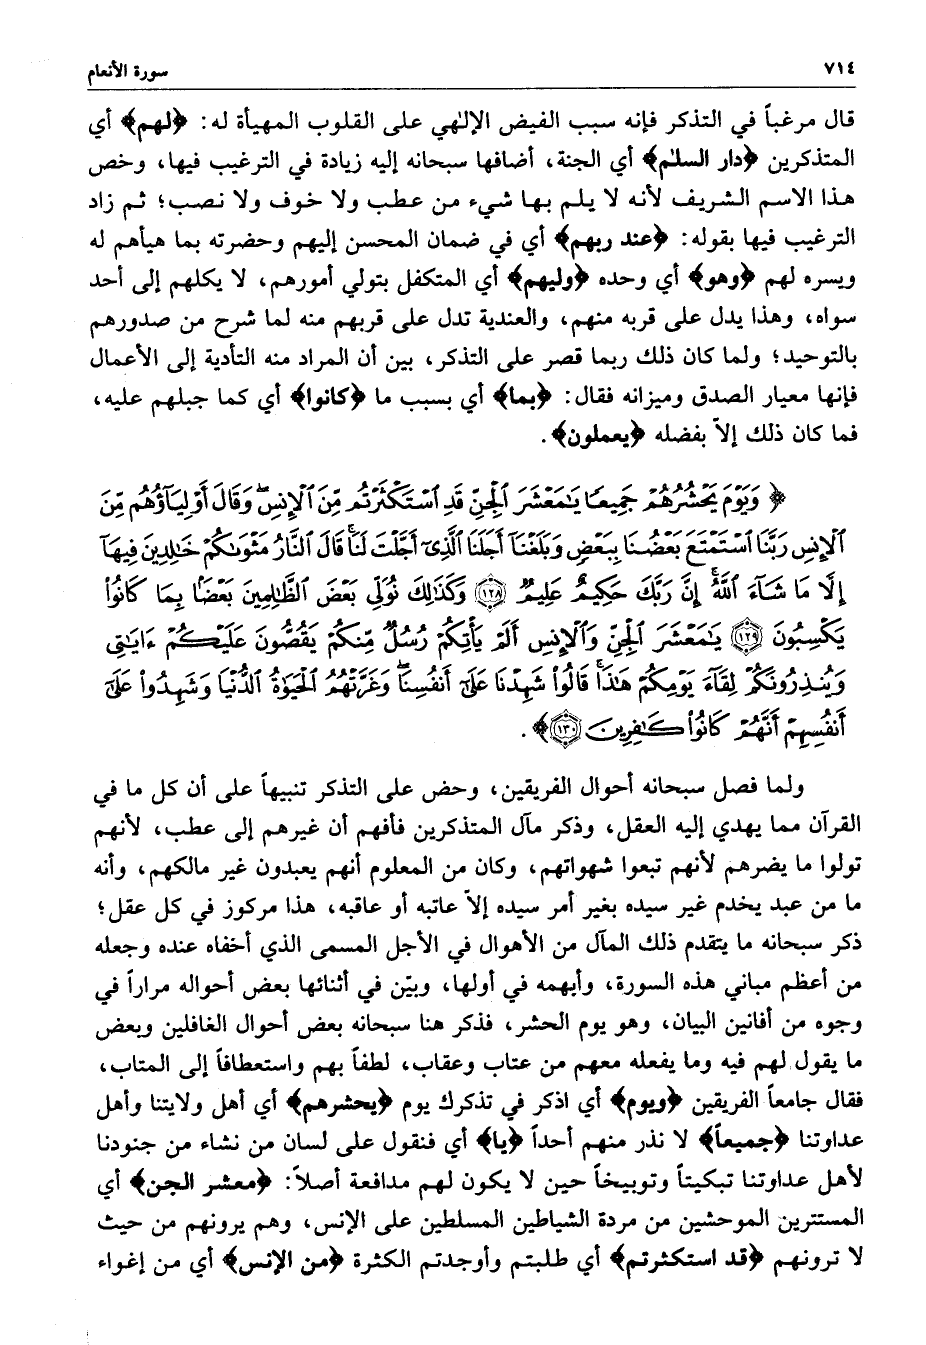 ٧١٤ سورة الأنعام
قال مرغباً في التذكر فإنه سبب الفيض الإلهي على القلوب المهيأة له: ﴿لهم﴾ أي
المتذكرين ﴿دار السلم﴾ أي الجنة، أضافها سبحانه إليه زيادة في الترغيب فيها، وخص
هذا الاسم الشريف لأنه لا يلم بها شيء من عطب ولا خوف ولا نصب؛ ثم زاد
الترغيب فيها بقوله: ﴿عند ربهم﴾ أي في ضمان المحسن إليهم وحضرته بما هيأهم له
ويسره لهم ﴿وهو﴾ أي وحده ﴿وليهم﴾ أي المتكفل بتولي أمورهم، لا يكلهم إلى أحد
سواه، وهذا يدل على قربه منهم، والعندية تدل على قربهم منه لما شرح من صدورهم
بالتوحيد؛ ولما كان ذلك ربما قصر على التذكر، بين أن المراد منه التأدية إلى الأعمال
فإنها معيار الصدق وميزانه فقال: ﴿بما﴾ أي بسبب ما ﴿كانوا﴾ أي كما جبلهم عليه،
فما كان ذلك إلاّ بفضله ﴿يعملون﴾.
﴿ وَيَوْمَ يَحْشُرُهُمْ جَمِيعًا يَٰمَعْشَرَ ٱلْجِنِّ قَدِ ٱسْتَكْثَرْتُم مِّنَ ٱلْإِنسِ ۖ وَقَالَ أَوْلِيَآؤُهُم مِّنَ
ٱلْإِنسِ رَبَّنَا ٱسْتَمْتَعَ بَعْضُنَا بِبَعْضٍ وَبَلَغْنَآ أَجَلَنَا ٱلَّذِىٓ أَجَّلْتَ لَنَا ۚ قَالَ ٱلنَّارُ مَثْوَىٰكُمْ خَٰلِدِينَ فِيهَآ
إِلَّا مَا شَآءَ ٱللَّهُ ۗ إِنَّ رَبَّكَ حَكِيمٌ عَلِيمٌ ١٢٨ وَكَذَٰلِكَ نُوَلِّى بَعْضَ ٱلظَّٰلِمِينَ بَعْضًۢا بِمَا كَانُوا۟
يَكْسِبُونَ ١٢٩ يَٰمَعْشَرَ ٱلْجِنِّ وَٱلْإِنسِ أَلَمْ يَأْتِكُمْ رُسُلٌ مِّنكُمْ يَقُصُّونَ عَلَيْكُمْ ءَايَٰتِى
وَيُنذِرُونَكُمْ لِقَآءَ يَوْمِكُمْ هَٰذَا ۚ قَالُوا۟ شَهِدْنَا عَلَىٰٓ أَنفُسِنَا ۖ وَغَرَّتْهُمُ ٱلْحَيَوٰةُ ٱلدُّنْيَا وَشَهِدُوا۟ عَلَىٰٓ
أَنفُسِهِمْ أَنَّهُمْ كَانُوا۟ كَٰفِرِينَ ١٣٠﴾.
ولما فصل سبحانه أحوال الفريقين، وحض على التذكر تنبيهاً على أن كل ما في
القرآن مما يهدي إليه العقل، وذكر مآل المتذكرين فأفهم أن غيرهم إلى عطب، لأنهم
تولوا ما يضرهم لأنهم تبعوا شهواتهم، وكان من المعلوم أنهم يعبدون غير مالكهم، وأنه
ما من عبد يخدم غير سيده بغير أمر سيده إلاّ عاتبه أو عاقبه، هذا مركوز في كل عقل؛
ذكر سبحانه ما يتقدم ذلك المآل من الأهوال في الأجل المسمى الذي أخفاه عنده وجعله
من أعظم مباني هذه السورة، وأبهمه في أولها، وبيّن في أثنائها بعض أحواله مراراً في
وجوه من أفانين البيان، وهو يوم الحشر، فذكر هنا سبحانه بعض أحوال الغافلين وبعض
ما يقول لهم فيه وما يفعله معهم من عتاب وعقاب، لطفاً بهم واستعطافاً إلى المتاب،
فقال جامعاً الفريقين ﴿ويوم﴾ أي اذكر في تذكرك يوم ﴿يحشرهم﴾ أي أهل ولايتنا وأهل
عداوتنا ﴿جميعاً﴾ لا نذر منهم أحداً ﴿يا﴾ أي فنقول على لسان من نشاء من جنودنا
لأهل عداوتنا تبكيتاً وتوبيخاً حين لا يكون لهم مدافعة أصلاً: ﴿معشر الجن﴾ أي
المستترين الموحشين من مردة الشياطين المسلطين على الإنس، وهم يرونهم من حيث
لا ترونهم ﴿قد استكثرتم﴾ أي طلبتم وأوجدتم الكثرة ﴿من الإنس﴾ أي من إغواء